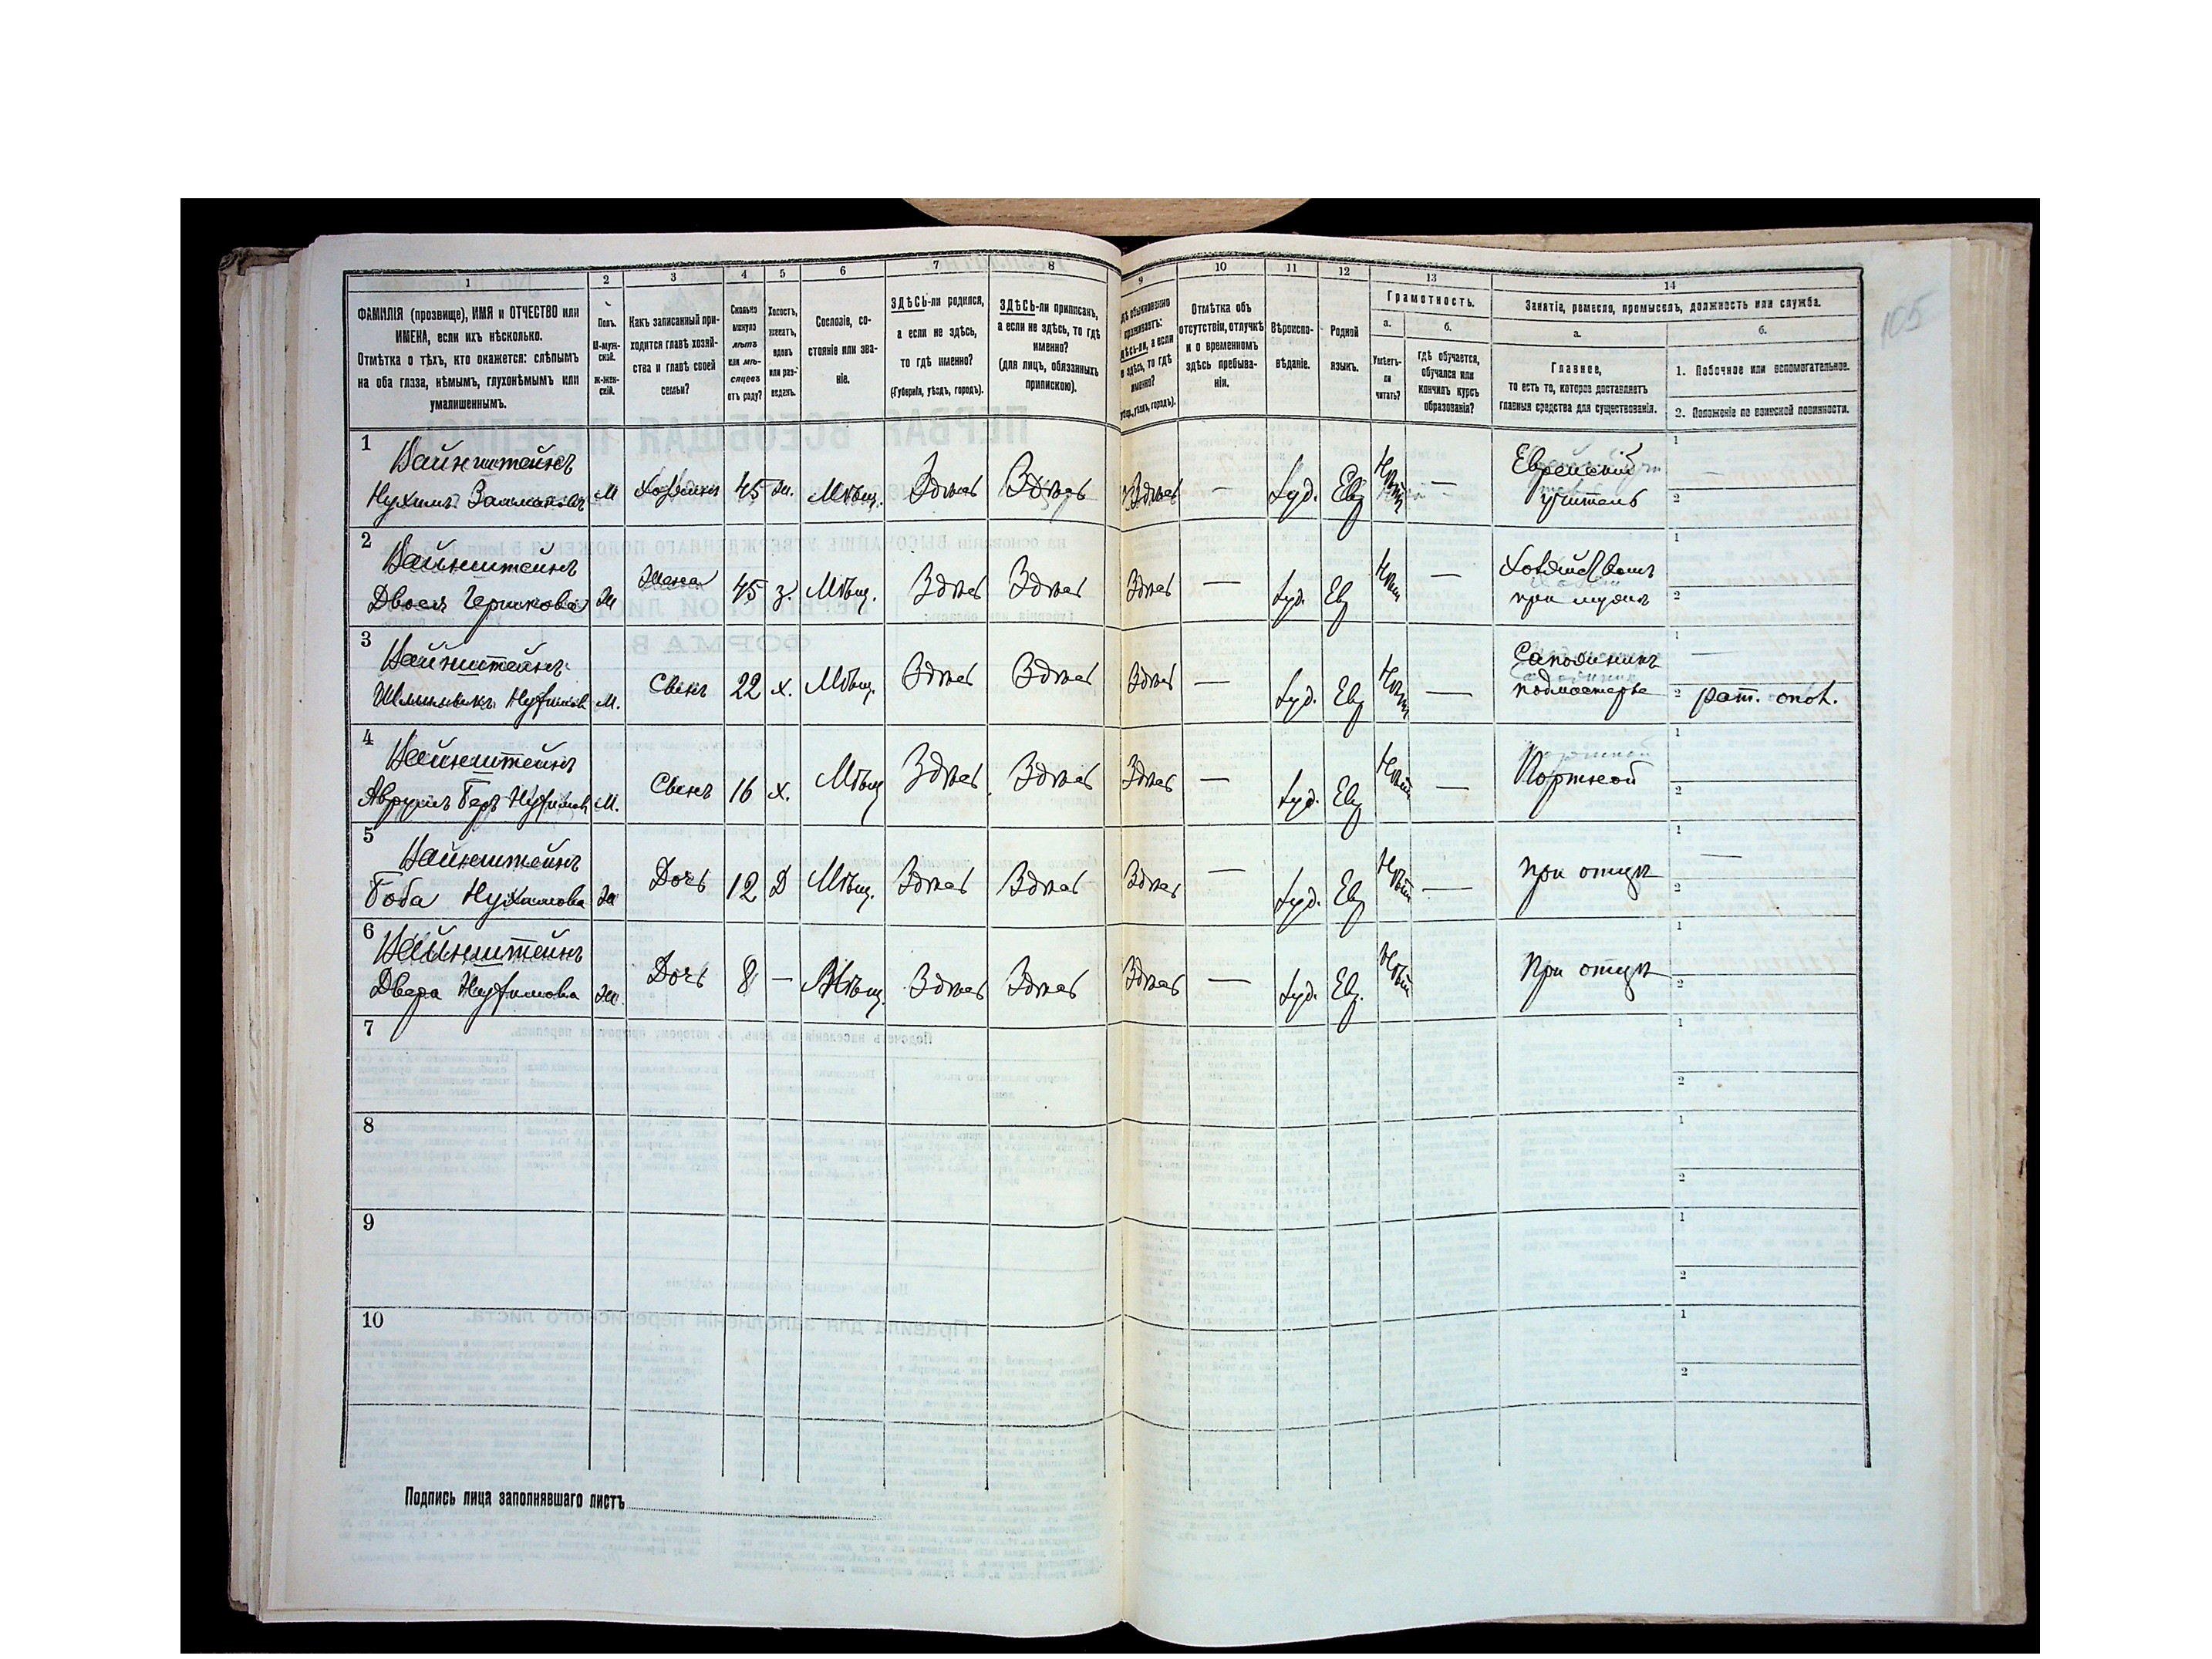 105
1 2 3 4 5 6 7 8 9 10 11 12 13 14
ФАМИЛІЯ (прозвище), ИМЯ и ОТЧЕСТВО или ИМЕНА, если ихъ нѣсколько.
Отмѣтка о тѣхъ, кто окажется: слѣпымъ на оба глаза, нѣмымъ, глухонѣмымъ или умалишеннымъ.
Полъ. М-мужской. Ж-женскій.
Какъ записанный приходится главѣ хозяйства и главѣ своей семьи?
Сколько минуло лѣтъ или мѣсяцевъ отъ роду?
Холостъ, женатъ, вдовъ или разведенъ.
Сословіе, состояніе или званіе.
ЗДѢСЬ-ли родился, а если не здѣсь, то гдѣ именно?
(Губернія, уѣздъ, городъ).
ЗДѢСЬ-ли приписанъ, а если не здѣсь, то гдѣ именно?
(для лицъ, обязанныхъ припискою).
Гдѣ обыкновенно проживаетъ: здѣсь-ли, а если не здѣсь, то гдѣ именно?
(Губ., уѣздъ, городъ).
Отмѣтка объ отсутствіи, отлучкѣ и о временномъ здѣсь пребываніи.
Вѣроисповѣданіе.
Родной языкъ.
Грамотность.
а. Умѣетъ-ли читать?
б. Гдѣ обучается, обучался или кончилъ курсъ образованія?
Занятіе, ремесло, промыселъ, должность или служба.
а. Главное, то есть то, которое доставляетъ главныя средства для существованія.
б.
1. Побочное или вспомогательное.
2. Положеніе по воинской повинности.
1 Вайнштейнъ
Нухимъ Залмановъ М Хозяинъ 45 ж. Мѣщ. Здѣсь Здѣсь Здѣсь — Іуд. Евр Нѣтъ — Еврейскій учитель
2 Вайнштейнъ
Двося Гершкова Ж Жена 45 з. Мѣщ. Здѣсь Здѣсь Здѣсь — Іуд. Евр Нѣтъ — при мужѣ
3 Вайнштейнъ
Нухимов М. Сынъ 22 х. Мѣщ. Здѣсь Здѣсь Здѣсь — Іуд. Евр Нѣтъ — Сапожникъ подмастерье
рат. опол.
4 Вайнштейнъ
Аврумъ Беръ Нухимов М. Сынъ 16 х. Мѣщ Здѣсь Здѣсь Здѣсь — Іуд. Евр Нѣтъ — Портной
5 Вайнштейнъ
Боба Нухимова Ж Дочь 12 Д Мѣщ. Здѣсь Здѣсь Здѣсь — Іуд. Евр Нѣтъ — При отцѣ
6 Вайнштейнъ
Двера Нухимова Ж. Дочь 8 — Мѣщ. Здѣсь Здѣсь Здѣсь — Іуд. Евр. Нѣтъ При отцѣ
7
8
9
10
Подпись лица заполнявшаго листъ